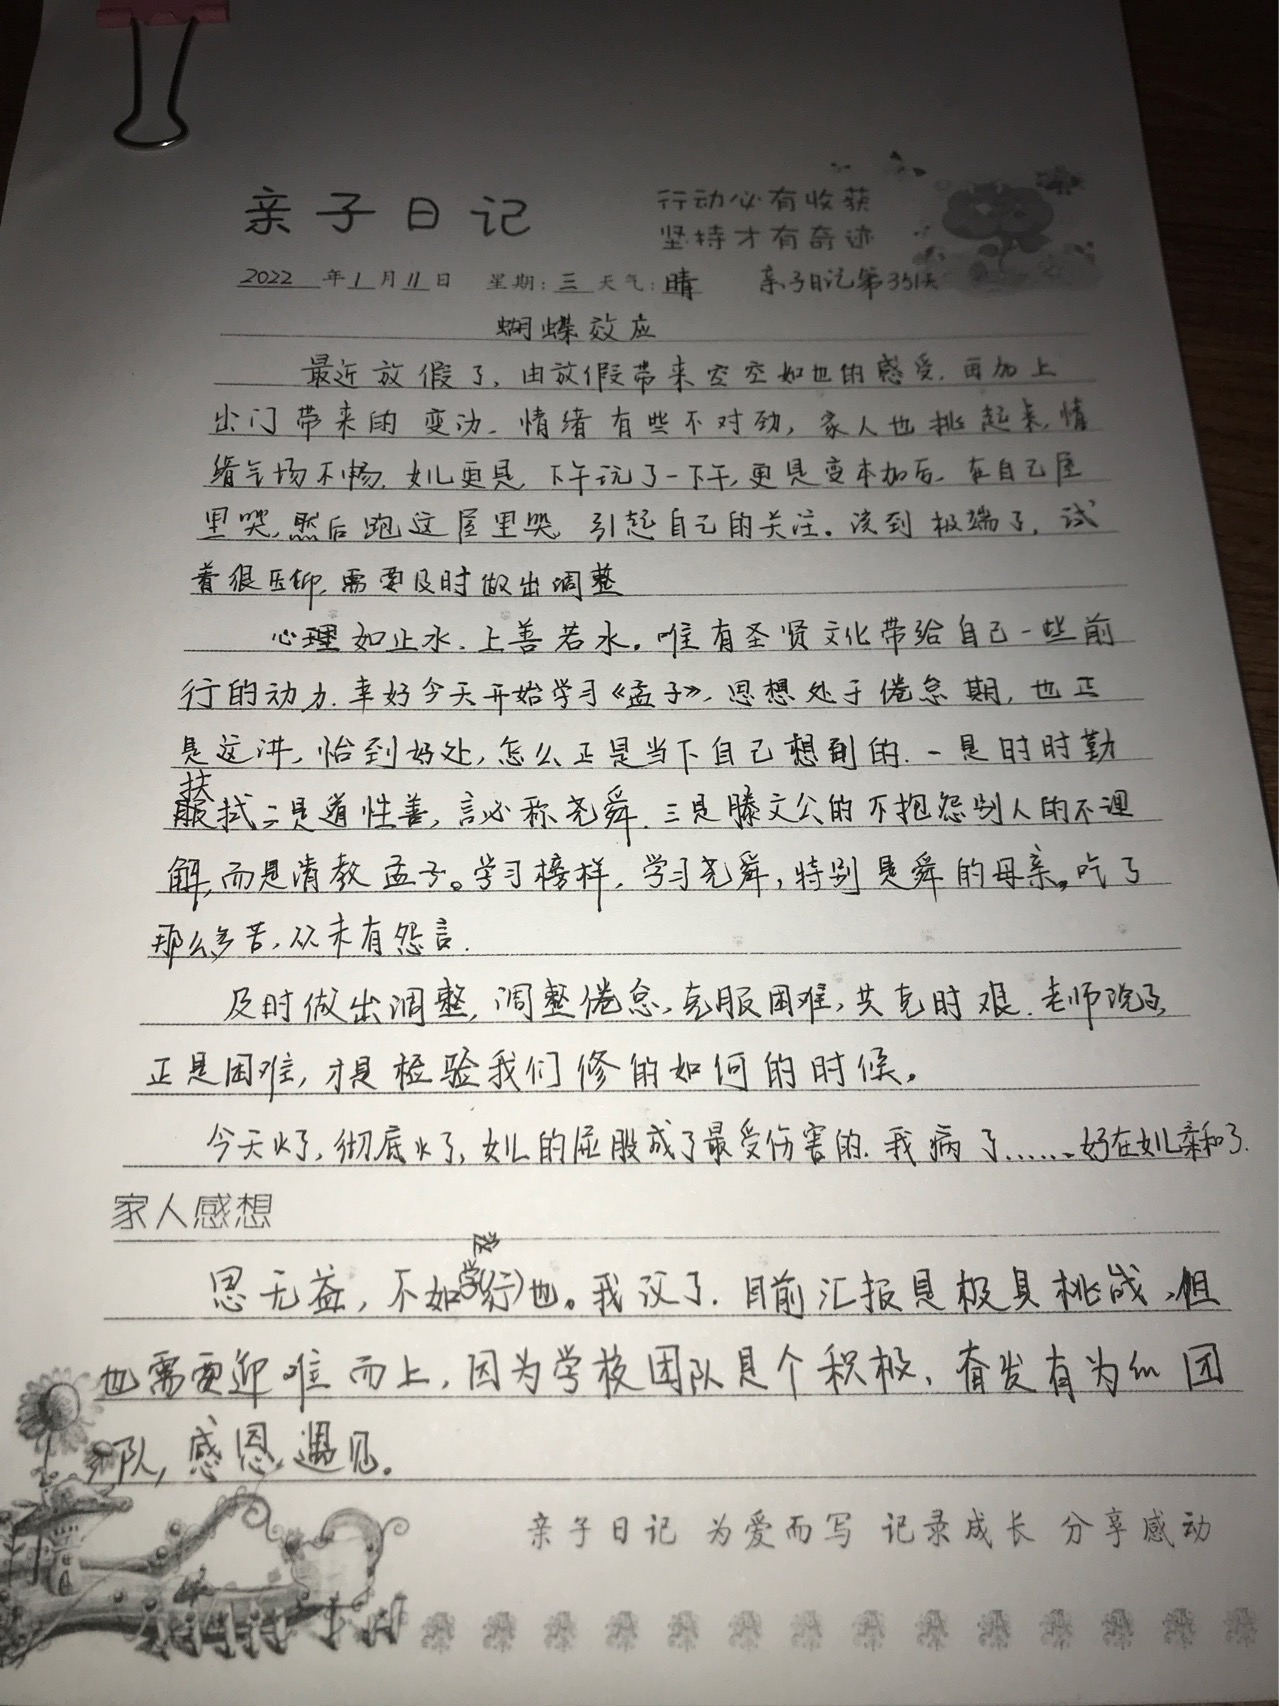 亲子日记
行动必有收获
坚持才有奇迹
2022年1月11日 星期:三 天气:晴 亲子日记第351天
蝴蝶效应
最近放假了,由放假带来空空如也的感受,再加上
出门带来的变动,情绪有些不对劲,家人也挑起来,情
绪气场不畅,女儿更是,下午玩了一下午,更是变本加厉,在自己屋
里哭,然后跑这屋里哭,引起自己的关注。没到极端了,试
着很压抑,需要及时做出调整
心理如止水,上善若水。唯有圣贤文化带给自己一些前
行的动力,幸好今天开始学习《孟子》,思想处于倦怠期,也正
是这讲,恰到好处,怎么正是当下自己想到的.一是时时勤
扶
服拭二是道性善,言必称尧舜.三是滕文公的不抱怨别人的不理
解,而是请教孟子。学习榜样,学习尧舜,特别是舜的母亲,吃了
那么多苦,从未有怨言.
及时做出调整,调整倦怠,克服困难,共克时艰.老师说了,
正是困难,才是检验我们修的如何的时候。
今天火了,彻底火了,女儿的屁股成了最受伤害的.我病了……好在女儿亲和了.
家人感想
思无益,不如学(行)也。我议了.目前汇报是极具挑战,但
也需要迎难而上,因为学校团队是个积极、奋发有为的团
队,感恩遇见.
亲子日记 为爱而写 记录成长 分享感动